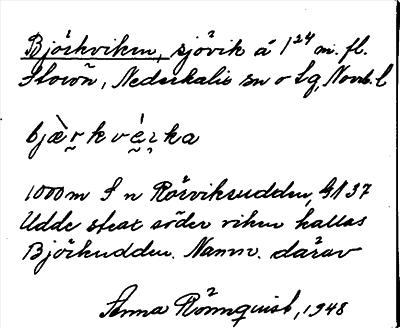 Björkviken, sjövik å 124 m. fl.
Storön, Nederkalix sn o Lg, Norrb. l
bjæ̀r̥kvér̥ka
1000 m S n Rörviksudden, GN 37
Udde strax söder viken kallas
Björkudden. Namn. därav
Anna Rönnquist, 1948